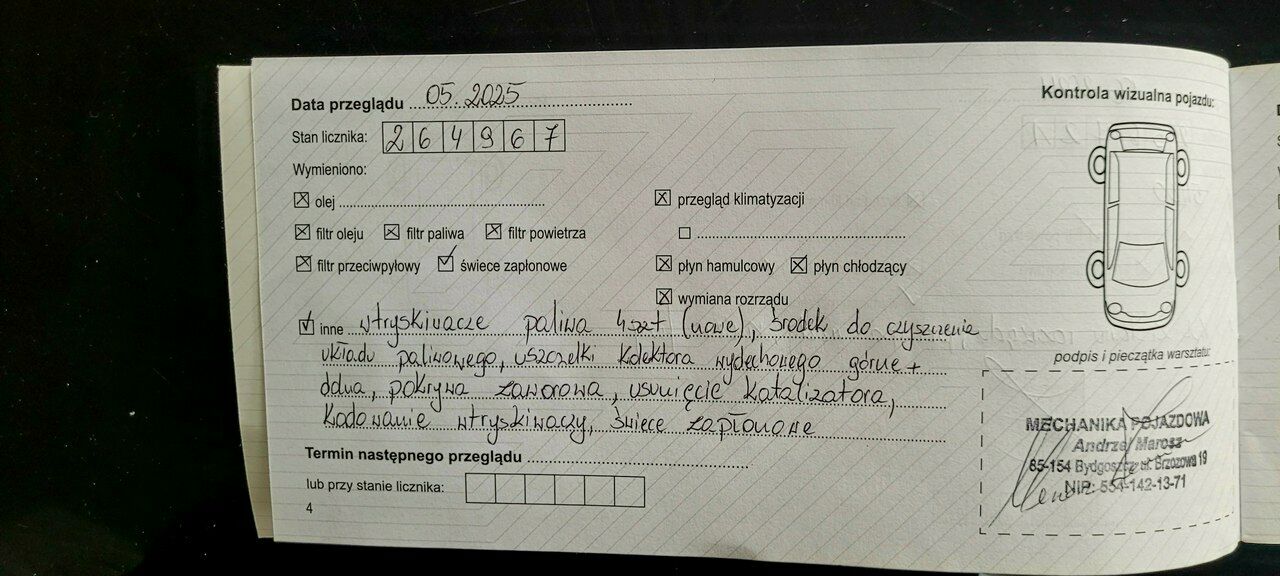 Data przeglądu 05.2025
Kontrola wizualna pojazdu:
Stan licznika: 264967
Wymieniono:
olej
przegląd klimatyzacji
filtr oleju filtr paliwa filtr powietrza
filtr przeciwpyłowy świece zapłonowe
płyn hamulcowy płyn chłodzący
wymiana rozrządu
inne wtryskiwacze paliwa 4szt (nowe), środek do czyszczenia
układu paliwowego, uszczelki kolektora wydechowego górne +
dolna, pokrywa zaworowa, usunięcie katalizatora,
kodowanie wtryskiwaczy, świece zapłonowe
podpis i pieczątka warsztatu:
MECHANIKA POJAZDOWA
Andrzej Marosz
85-154 Bydgoszcz ul. Brzozowa 19
NIP: 554-142-13-71
Termin następnego przeglądu
lub przy stanie licznika:
4